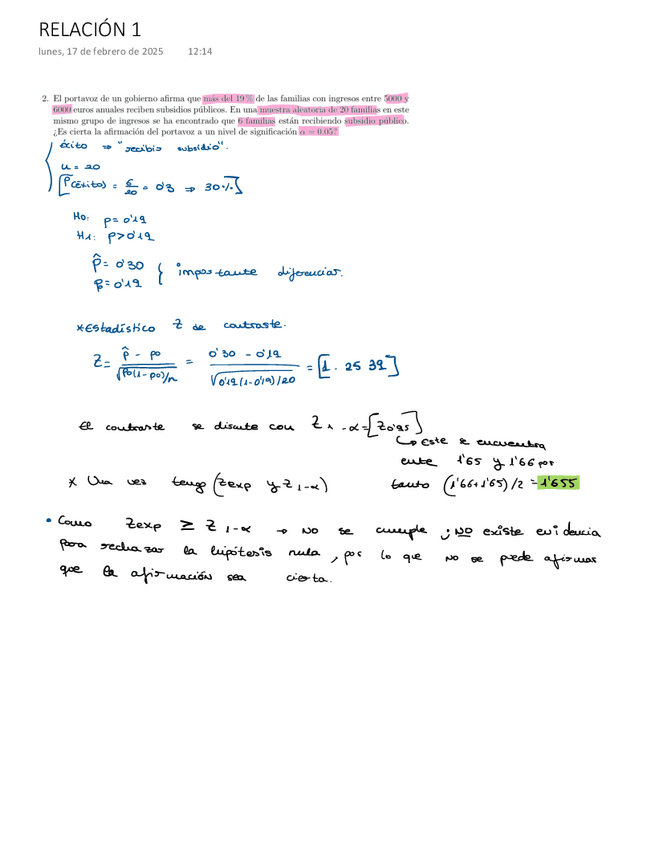 RELACIÓN 1
lunes, 17 de febrero de 2025 12:14
2. El portavoz de un gobierno afirma que más del 19% de las familias con ingresos entre 5000 y
6000 euros anuales reciben subsidios públicos. En una muestra aleatoria de 20 familias en este
mismo grupo de ingresos se ha encontrado que 6 familias están recibiendo subsidio público.
¿Es cierta la afirmación del portavoz a un nivel de significación α = 0.05?
éxito ⇒ "recibir subsidio".
n = 20
[P(Éxito) = 6/20 = 0'3 ⇒ 30%]
H0: p = 0'19
H1: p > 0'19
p̂ = 0'30
p = 0'19 } importante diferenciar.
*Estadístico Z de contraste.
Z = (p̂ - p0) / √(p0(1-p0)/n) = (0'30 - 0'19) / √(0'19(1-0'19)/20) = [1.2539]
El contraste se discute con Z1-α = [Z0'95]
↳ Este se encuentra
entre 1'65 y 1'66 por
* Una vez tengo (Zexp y Z1-α) tanto (1'66+1'65)/2 = 1'655
• Como Zexp ≥ Z1-α → No se cumple ; NO existe evidencia
para rechazar la hipótesis nula, por lo que no se puede afirmar
que la afirmación sea cierta.